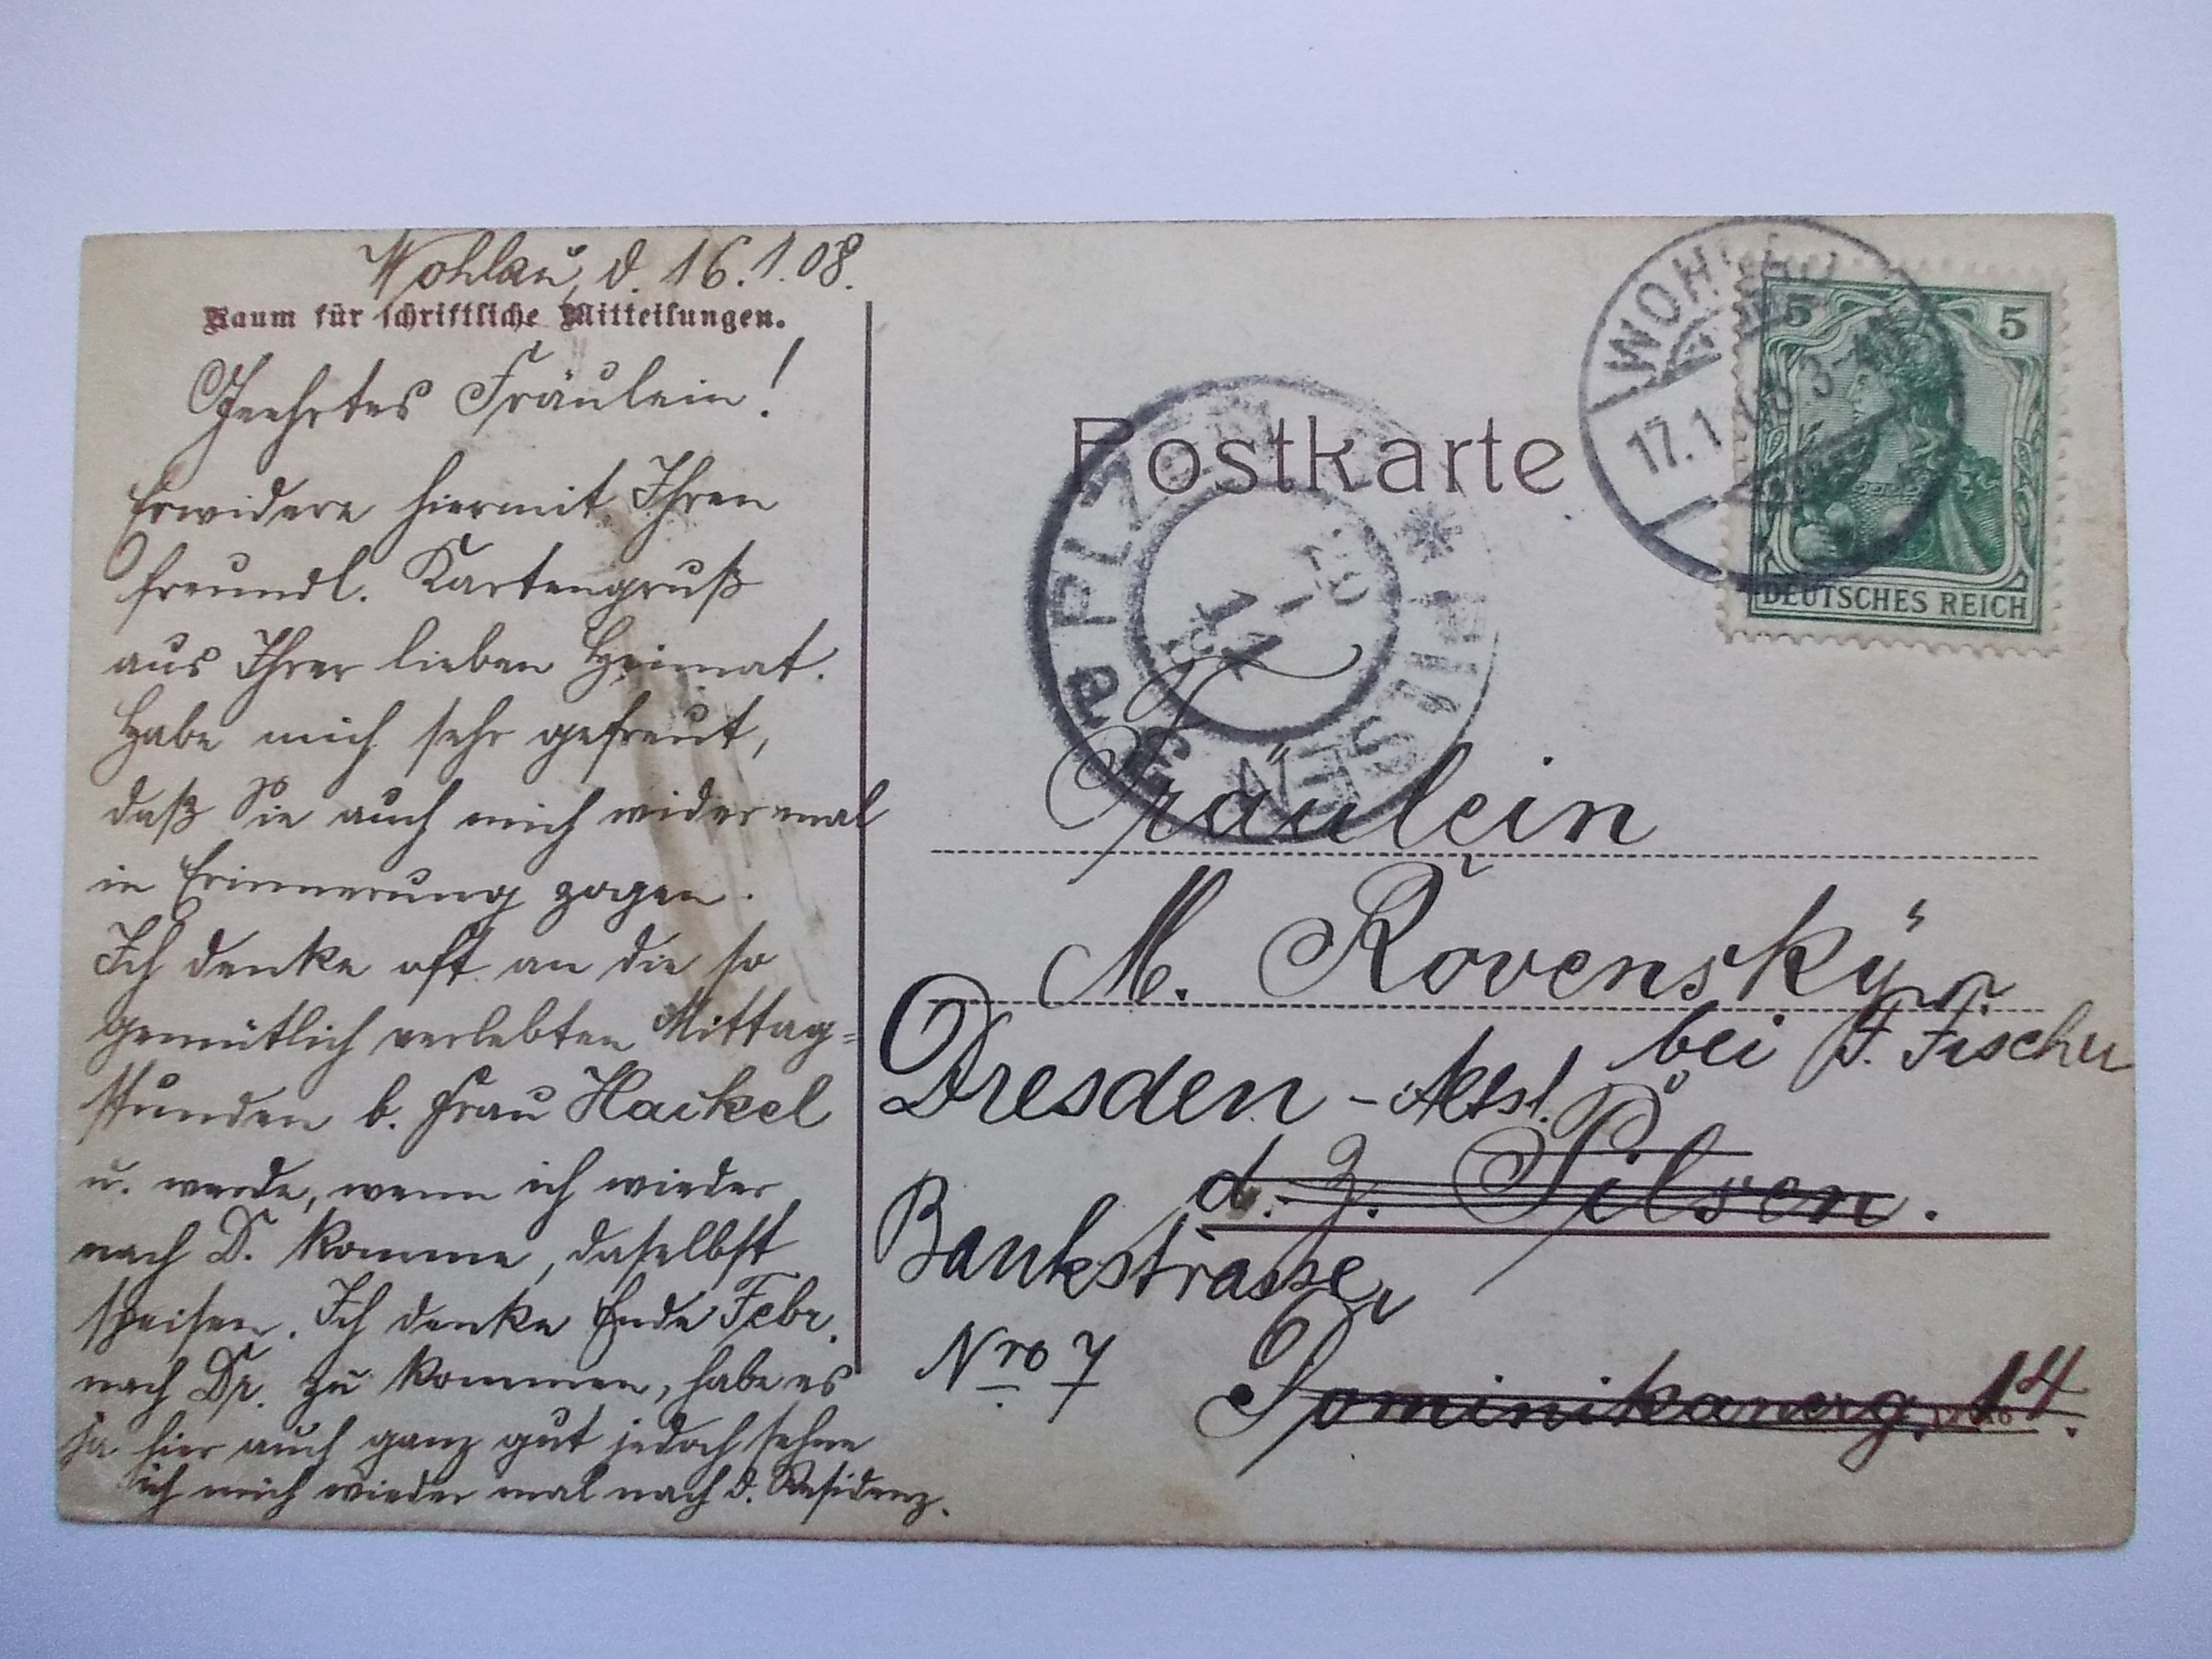 Wohlau, d. 16.1.08.
Raum für schriftliche Mitteilungen.
Geehrtes Fräulein!
Erwidere hiermit Ihren
freundl. Kartengruß
aus Ihrer lieben Heimat.
Habe mich sehr gefreut,
daß Sie auch mich wider mal
in Erinnerung zogen.
Ich denke oft an die so
gemütlich verlebten Mittag=
stunden b. Frau Hackel
u. werde, wenn ich wieder
nach D. komme, daselbst
speisen. Ich denke Ende Febr.
nach Dr. zu kommen, habe es
ja hier auch ganz gut jedoch sehne
ich mich wieder mal nach d. Residenz.
Postkarte
WOHLAU
17.1 3-4
5 5
DEUTSCHES REICH
PLZEŇ
PILSEN
18
1
Fräulein
M. Rovenský
bei F. Fischer
Dresden - Altst.
d. Z. Pilsen.
Bankstrasse
Nro 7
Dominikanerg. 14.